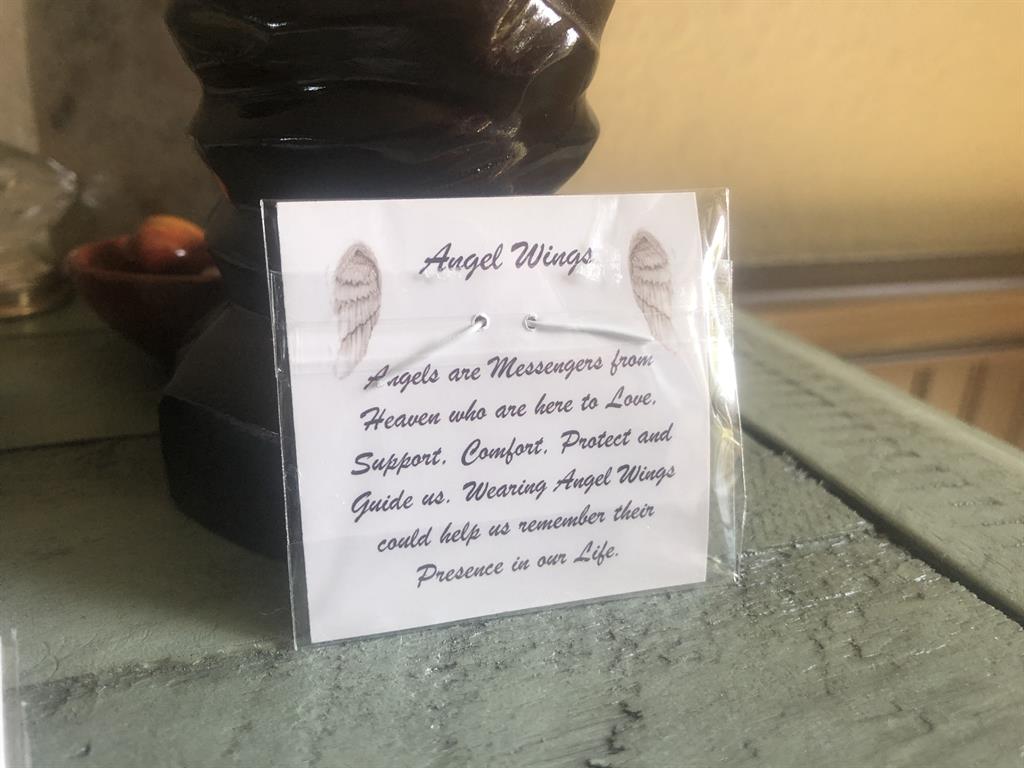 Angel Wings
Angels are Messengers from
Heaven who are here to Love,
Support, Comfort, Protect and
Guide us. Wearing Angel Wings
could help us remember their
Presence in our Life.